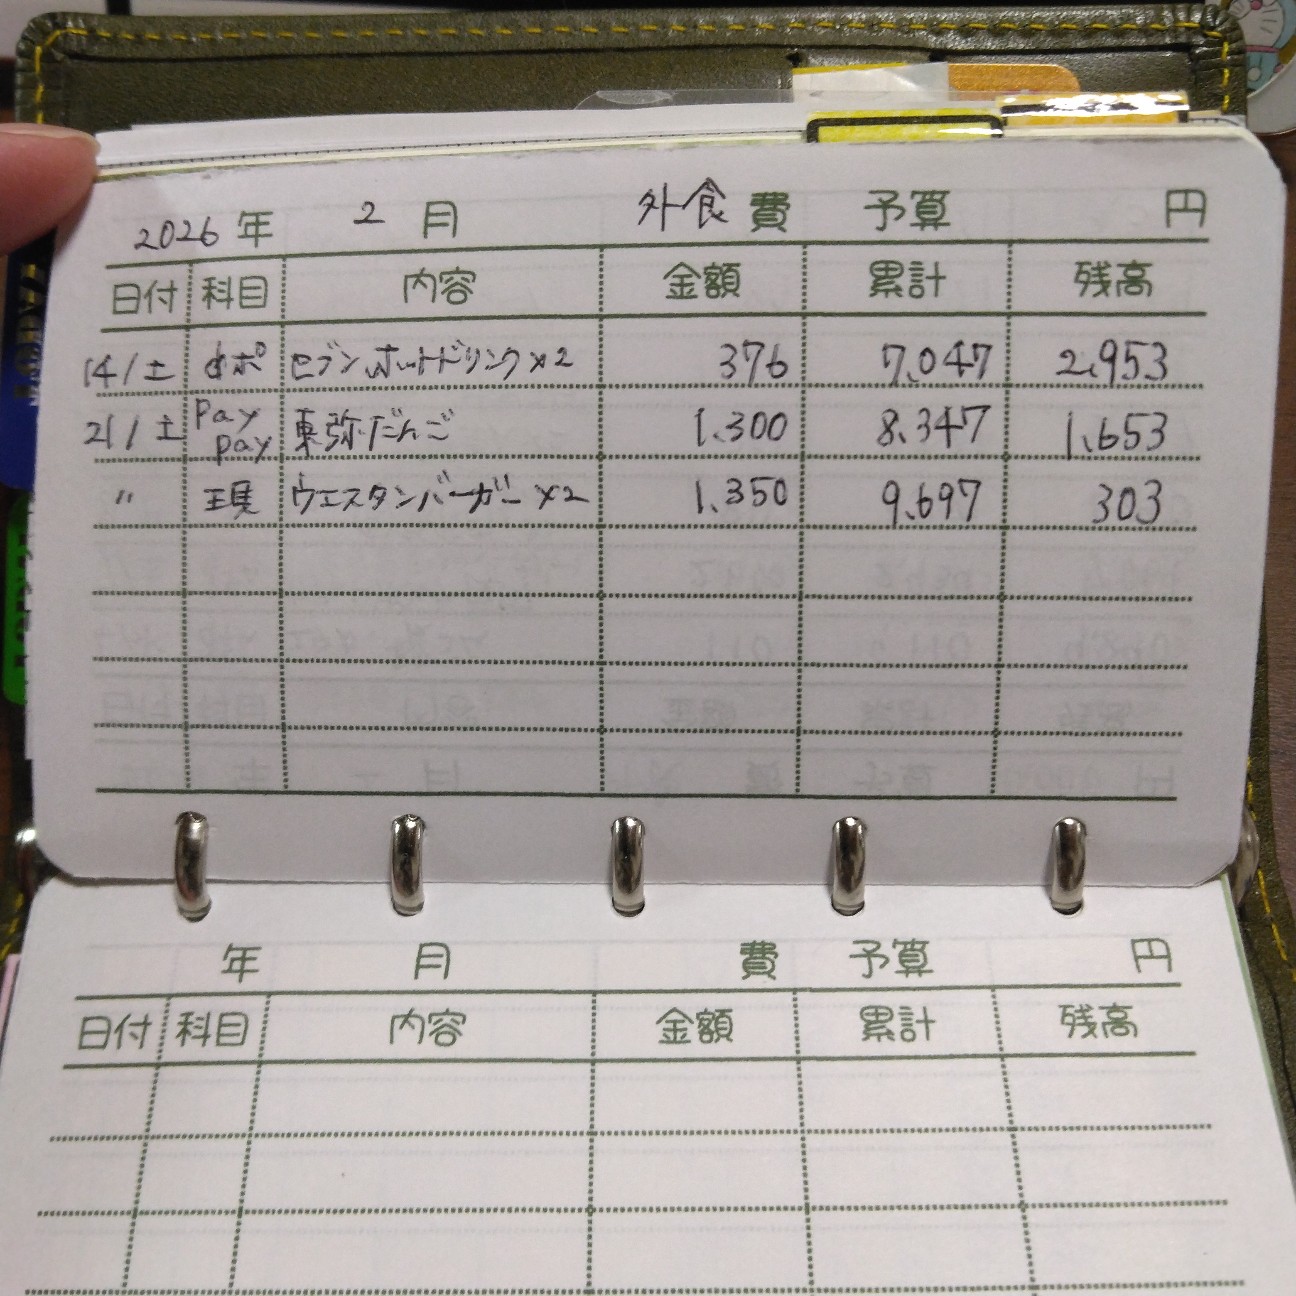 2026年 2月 外食費 予算 円
日付 科目 内容 金額 累計 残高
14/土 dポ セブン ホットドリンク×2 376 7,047 2,953
21/土 Pay pay 東弥だんご 1,300 8,347 1,653
〃 現 ウエスタンバーガー×2 1,350 9,697 303
年 月 費 予算 円
日付 科目 内容 金額 累計 残高